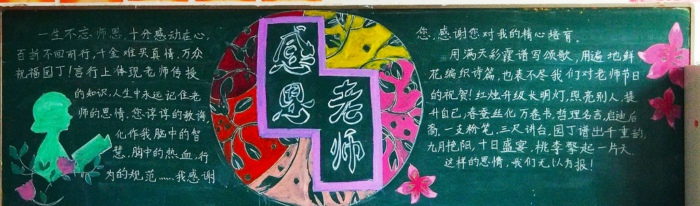 一生不忘师恩,十分感动在心,
百折不回前行,千金难买真情.万众
祝福园丁!言行上体现老师传授
的知识,人生中永远记住老
师的恩情.您谆谆的教诲,
化作我脑中的智
慧,胸中的热血,行
为的规范……我感谢
感恩
老师
您,感谢您对我的精心培育.
用满天彩霞谱写颂歌,用遍地鲜
花编织诗篇,也表不尽我们对老师节日
的祝贺!红烛升级长明灯,照亮别人,提
升自己,春蚕丝化万卷书,哲理名言,启迪后
裔,一支粉笔,三尺讲台,园丁谱出千重韵,
九月艳阳,十日盛宴,桃李擎起一片天.
这样的恩情,我们无以为报!